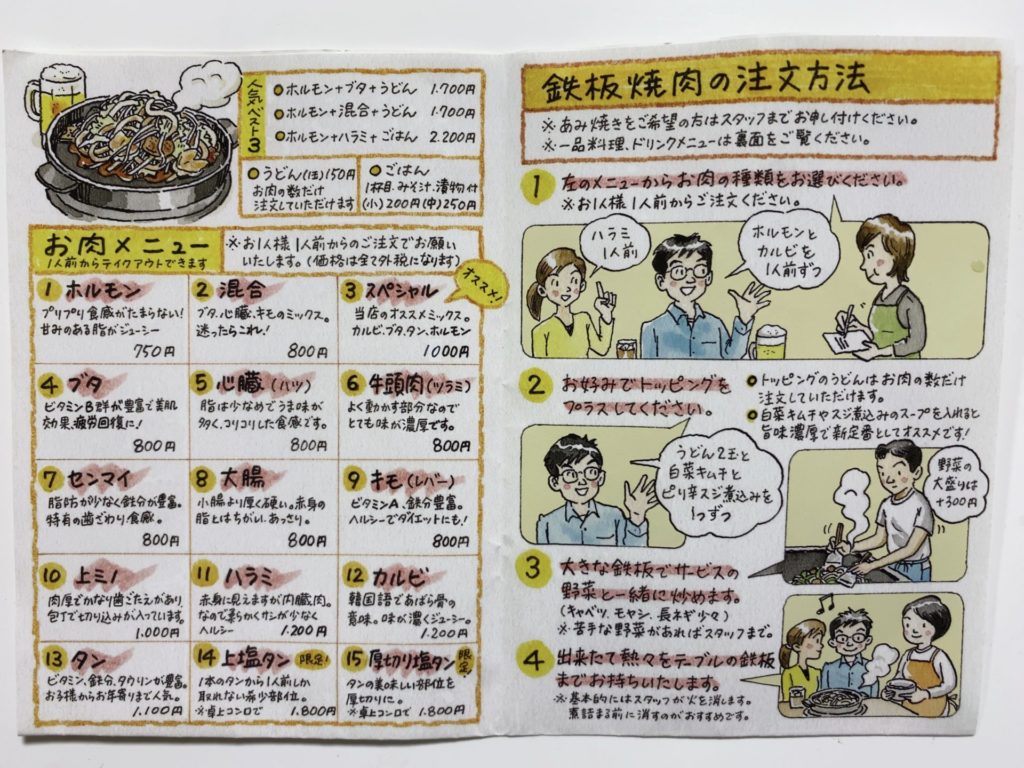 人気ベスト3
●ホルモン+ブタ+うどん 1.700円
●ホルモン+混合+うどん 1.700円
●ホルモン+ハラミ+ごはん 2.200円
●うどん(1玉)150円
お肉の数だけ
注文していただけます
●ごはん
1杯目、みそ汁、漬物付
(小)200円(中)250円
お肉メニュー
1人前からテイクアウトできます
※お1人様1人前からのご注文でお願い
いたします。(価格は全て外税になります)
オススメ!
1 ホルモン
プリプリ食感がたまらない!
甘みのある脂がジューシー
750円
2 混合
ブタ、心臓、キモのミックス。
迷ったらこれ!
800円
3 スペシャル
当店のオススメミックス。
カルビ、ブタ、タン、ホルモン
1000円
4 ブタ
ビタミンB群が豊富で美肌
効果、疲労回復に!
800円
5 心臓(ハツ)
脂は少なめでうま味が
多く、コリコリした食感です。
800円
6 牛頭肉(ツラミ)
よく動かす部分なので
とても味が濃厚です。
800円
7 センマイ
脂肪が少なく鉄分が豊富。
特有の歯ざわり食感。
800円
8 大腸
小腸より厚く硬い。赤身の
脂とはちがい、あっさり。
800円
9 キモ(レバー)
ビタミンA、鉄分豊富。
ヘルシーでダイエットにも!
800円
10 上ミノ
肉厚でかなり歯ごたえがあり、
包丁で切り込みが入っています。
1.000円
11 ハラミ
赤身に見えますが内臓肉。
なので柔らかくサシが少なく
ヘルシー 1.200円
12 カルビ
韓国語であばら骨の
意味。味が濃くジューシー。
1.200円
13 タン
ビタミン、鉄分、タウリンが豊富。
お子様からお年寄りまで人気。
1.100円
14 上塩タン 限定!
1本のタンから1人前しか
取れない希少部位。
※卓上コンロで 1.800円
15 厚切り塩タン 限定!
タンの美味しい部位を
厚切りに。
※卓上コンロで 1.800円
鉄板焼肉の注文方法
※あみ焼きをご希望の方はスタッフまでお申し付けください。
※一品料理、ドリンクメニューは裏面をご覧ください。
1 左のメニューからお肉の種類をお選びください。
※お1人様1人前からご注文ください。
ハラミ
1人前
ホルモンと
カルビを
1人前ずつ
2 お好みでトッピングを
プラスしてください。
●トッピングのうどんはお肉の数だけ
注文していただけます。
●白菜キムチやスジ煮込みのスープを入れると
旨味濃厚で新定番としてオススメです!
うどん2玉と
白菜キムチと
ピリ辛スジ煮込みを
1つずつ
野菜の
大盛りは
+300円
3 大きな鉄板でサービスの
野菜と一緒に炒めます。
(キャベツ、モヤシ、長ネギ少々)
※苦手な野菜があればスタッフまで。
4 出来たて熱々をテーブルの鉄板
までお持ちいたします。
※基本的にはスタッフが火を消します。
煮詰まる前に消すのがおすすめです。